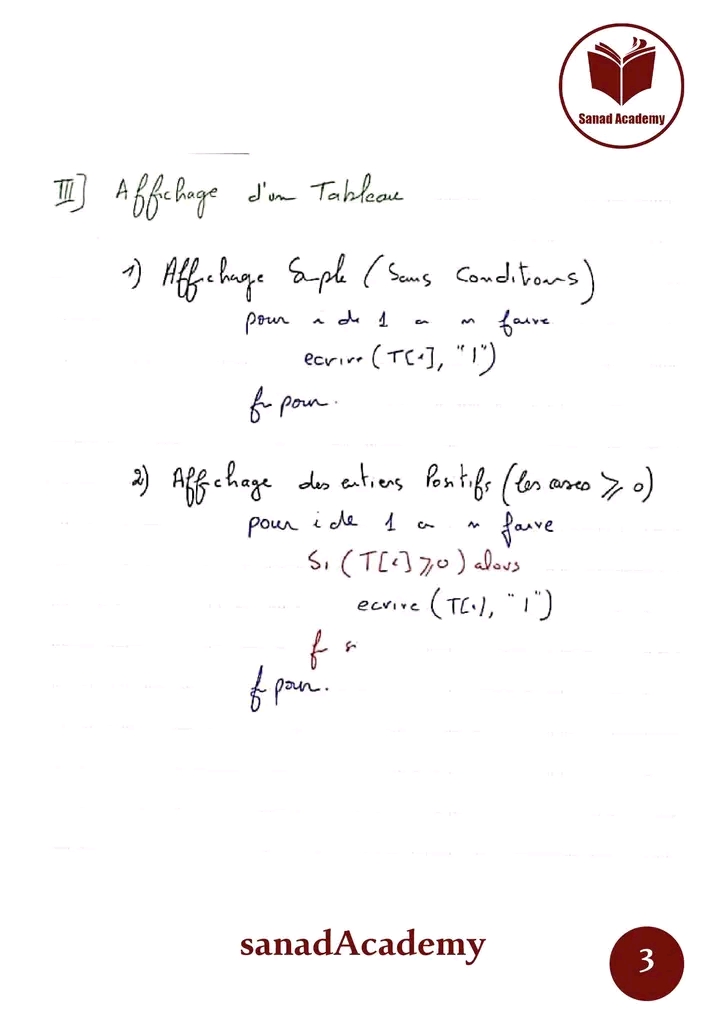 Sanad Academy
III] Affichage d'un Tableau
1) Affichage Simple (Sans Conditions)
pour i de 1 a n faire
ecrire (T[i], "|")
fin pour.
2) Affichage des entiers Positifs (les cases ⩾ 0)
pour i de 1 a n faire
Si (T[i] ⩾ 0) alors
ecrire (T[i], "|")
f si
f pour.
sanadAcademy
3